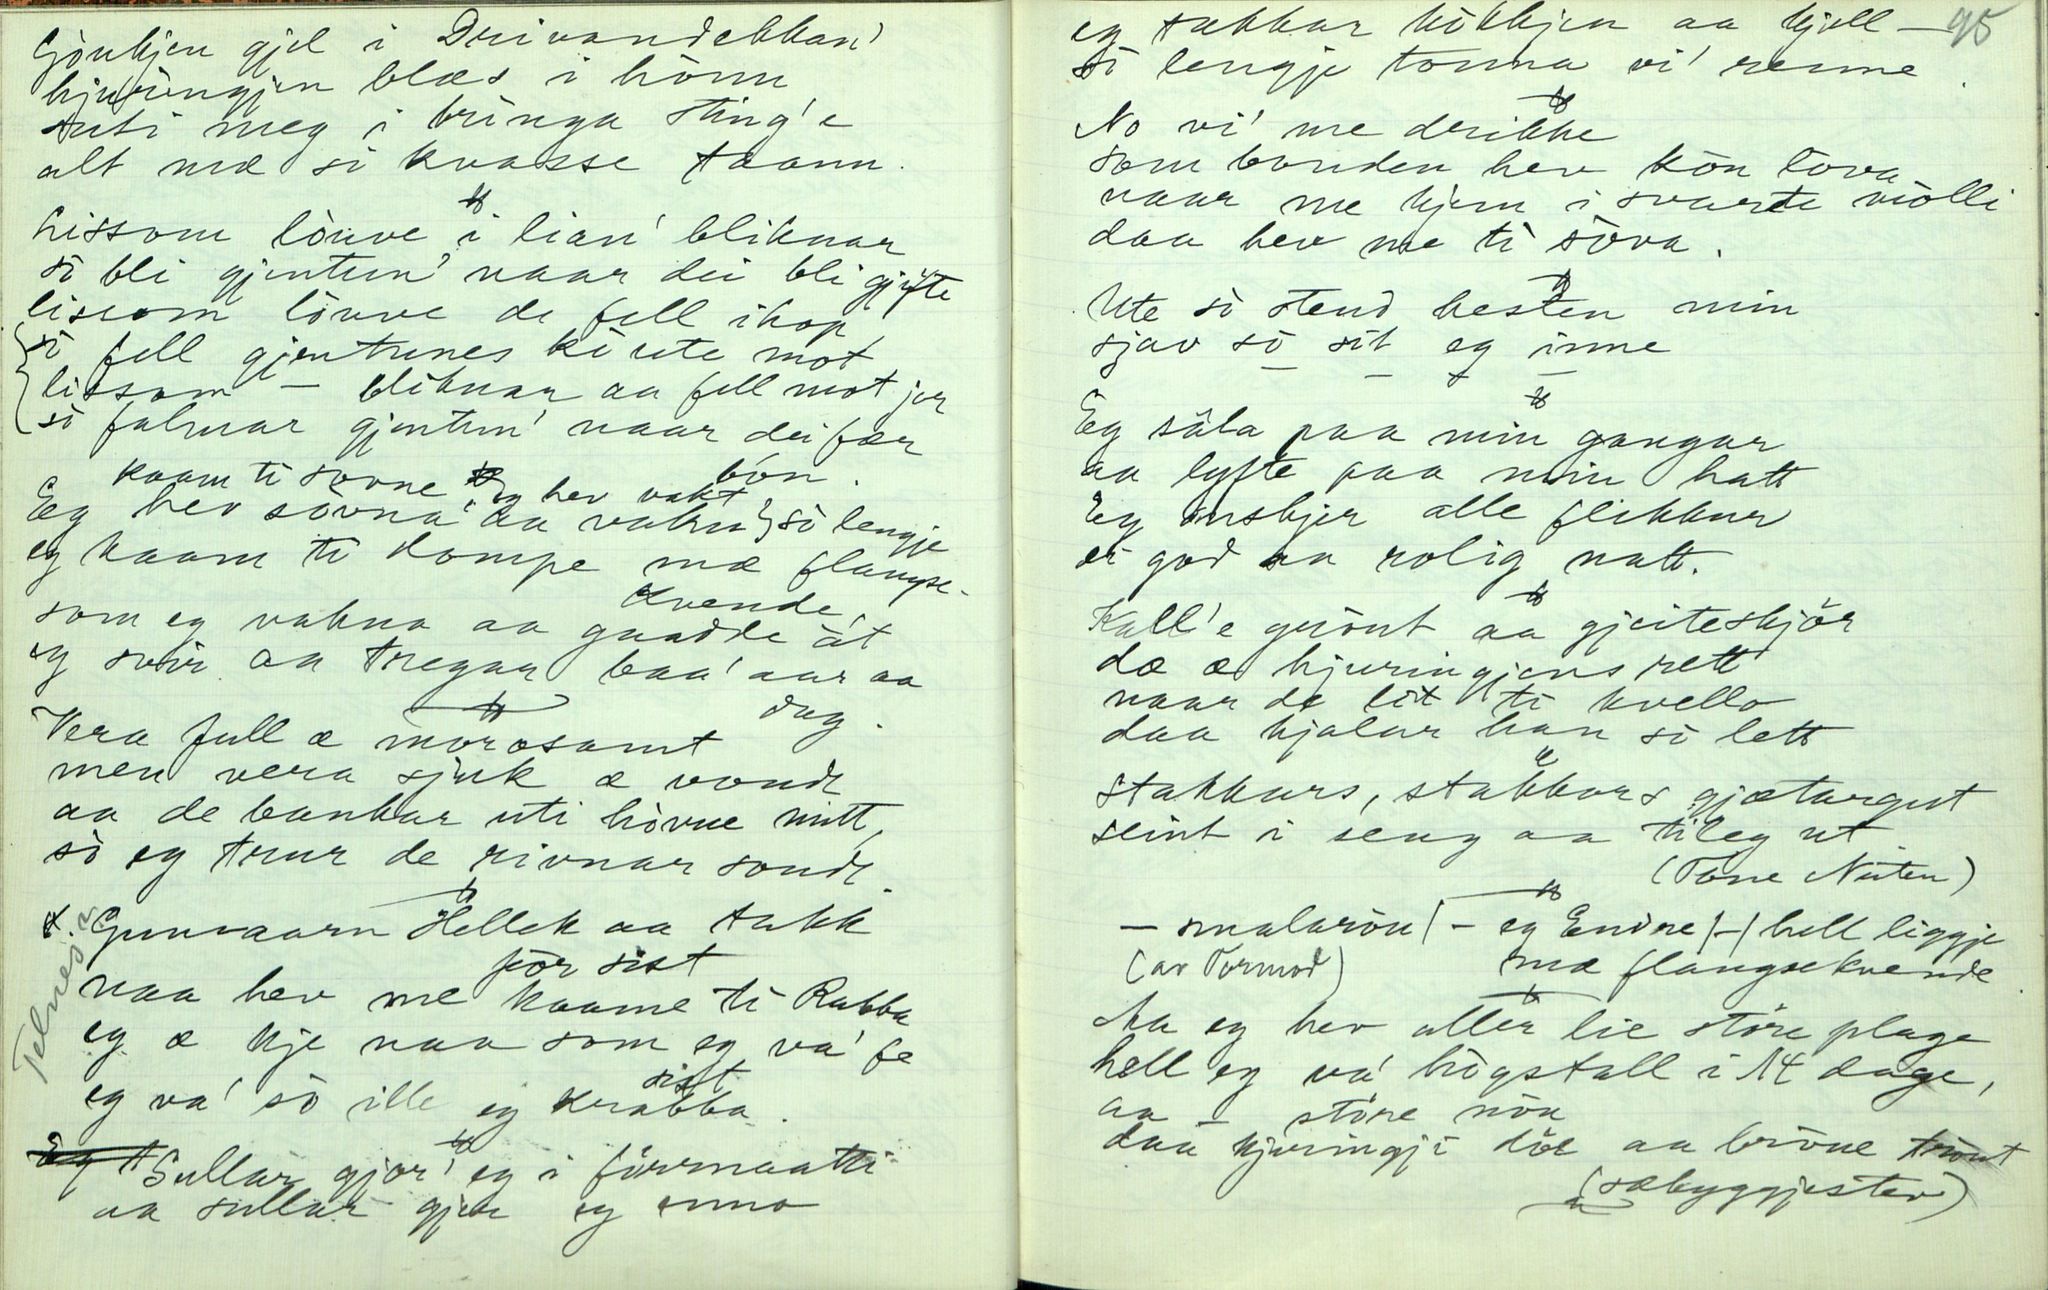 Gjøukjen gjel i Drivandekkan'
hjuringjen blæs i hònn
inti meg i bringa sting'e
alt mæ si kvasse taann.
Lissom lòuve i lian' bliknar
sò bli gjentun' naar dei bli gjifte
lissom lòuve de fell ihop
sò fell gjentunes kò ute mot
lissom — bliknar aa fell mot jor
sò falnar gjentun' naar dei fær
bón.
kaam ti sovne eg hev vakt
Eg hev sòvna aa vakna sò lengje
eg kaam ti kompe mæ flangse-
kvende,
som eg vakna aa gaadde át
eg svir aa tregar baa' aar aa
dag.
Vera full æ morosamt
men vera sjuk æ vondt
aa de bankar uti hòvue mitt,
sò eg trur de rivnar sondt.
Gunvaarn Hellek aa takk
för sist
naa hev me kaame ti Rabba
eg æ kje naa som eg va' fe
sist
eg va' sò ille eg krabba.
Telnesin
Sullar gjor' eg i fòrmaatti
aa sullar gjer eg enno
95
eg takkar kòkkjen aa kjell —
sò lengje tonna vi' renne.
No vi' me drikke
som bonden hev kòn lova
naar me kjem i svarte mòlli
daa hev me ti sòva.
Ute sò stend hesten min
sjav sò sit eg inne
— — — —
Eg säla paa min gangar
aa lyfte paa min hatt
Eg ònskjer alle flikkur
ei god aa rolig natt.
Kall'e gròut aa gjeiteskjör
dæ æ hjuringjens rett
naar de lit ti kvello
daa hjalar han sò lett
Stakkars, stakkars gjætargut
seint i seng aa tileg ut
(Tone Nuten)
— smalaròu | — eg Endre | — | hell liggje
(av Tormod) mæ flangsekvende
Aa eg hev aller lie störe plage
hell eg va' högstall i 14 dage,
aa — störe nòu
daa hjuringji dòe aa bròue tròut
(sæbyggjestev)